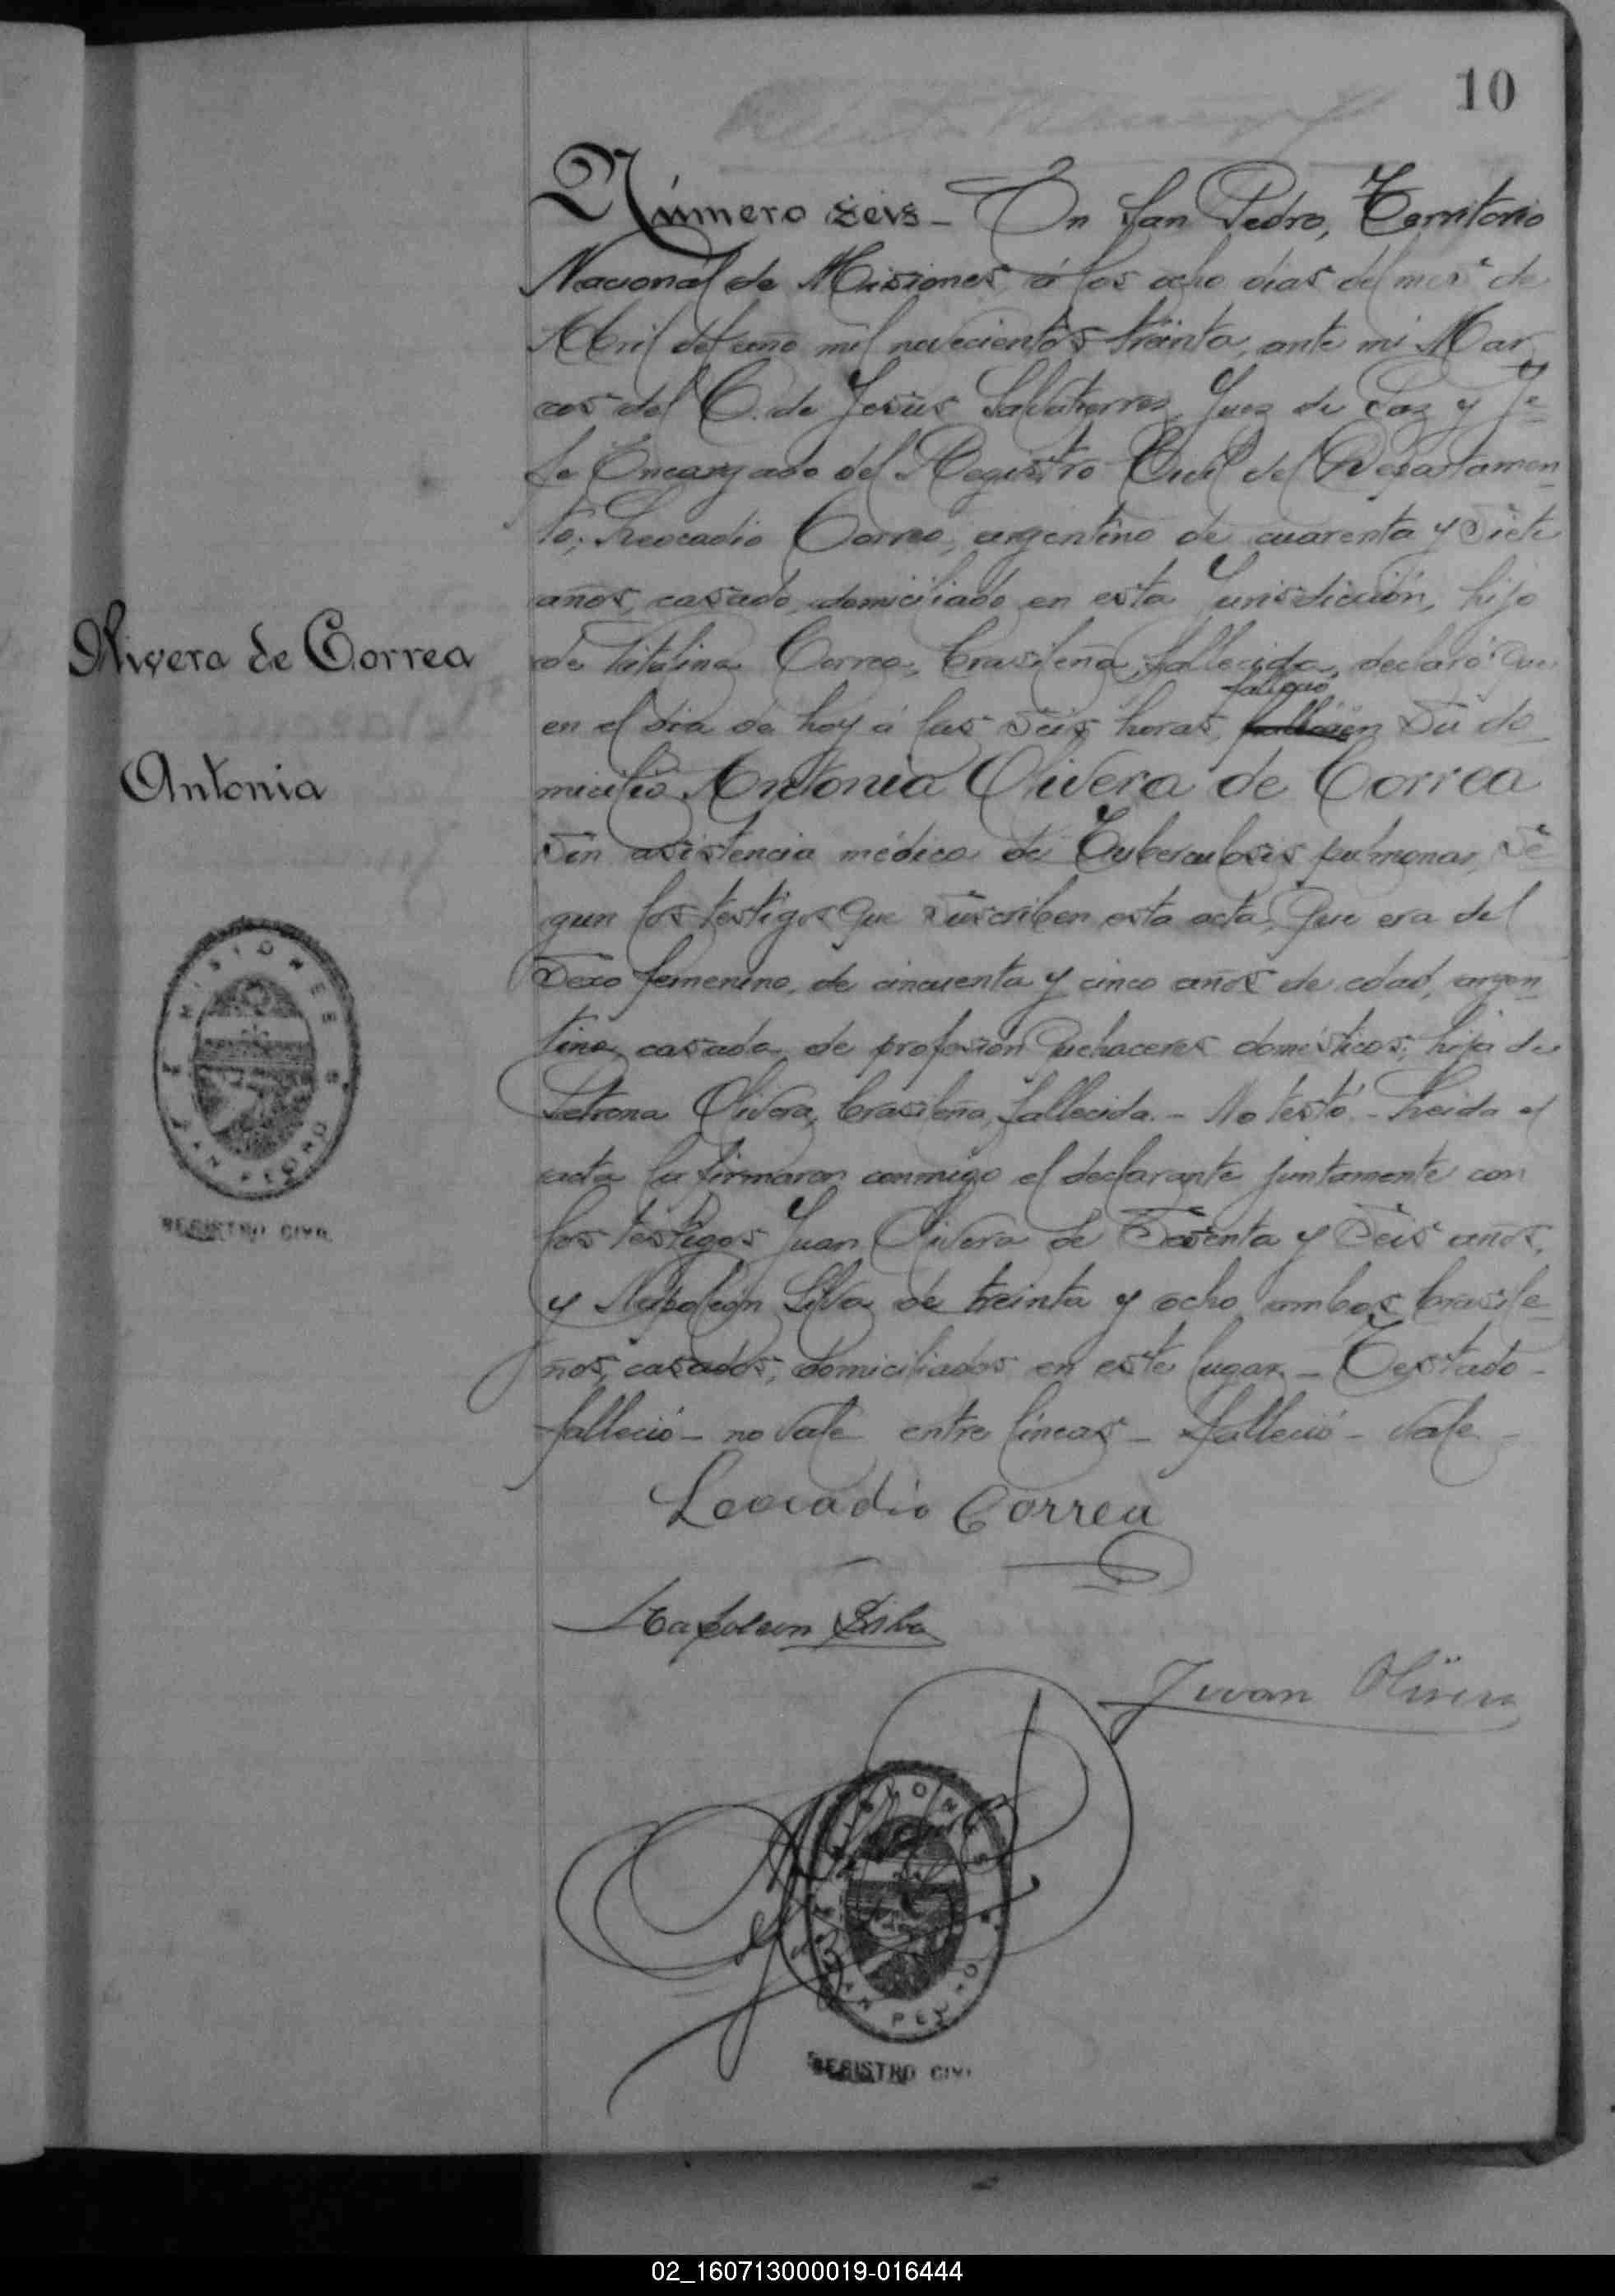 10
Número seis - En San Pedro, Territorio
Nacional de Misiones, á los ocho dias del mes de
Abril del año mil novecientos treinta, ante mi Mar
cos del C. de Jesús Salvatierra, Juez de Paz y Je-
fe Encargado del Registro Civil del Departamen-
to; Leocadio Correa, argentino de cuarenta y siete
años, casado, domiciliado en esta Jurisdicción, hijo
Olivera de Correa
de Vitalina Correa, brasileña, fallecida, declaró: Que
falleció
en el dia de hoy á las seis horas, en su do-
Antonia
micilio Antonia Olivera de Correa
sin asistencia médica de Tuberculosis pulmonar, se-
gun los testigos que suscriben esta acta, Que era del
sexo femenino, de cincuenta y cinco años de edad, argen-
tina, casada, de profesión quehaceres domésticos; hija de
Petrona Olivera, brasileña, fallecida. - No testó. - Leida el
acta la firmaron conmigo el declarante juntamente con
los testigos Juan Olivera de sesenta y seis años,
y Napoleón Silva de treinta y ocho, ambos brasile-
ños, casados, domiciliados en este lugar. - Testado -
falleció - no vale entre líneas - falleció - vale -
MISIONES
SAN PEDRO
REGISTRO CIVIL
Leocadio Correa
Napoleon Silva
Juvan Olivera
MISIONES
SAN PEDRO
REGISTRO CIVIL
02_160713000019-016444